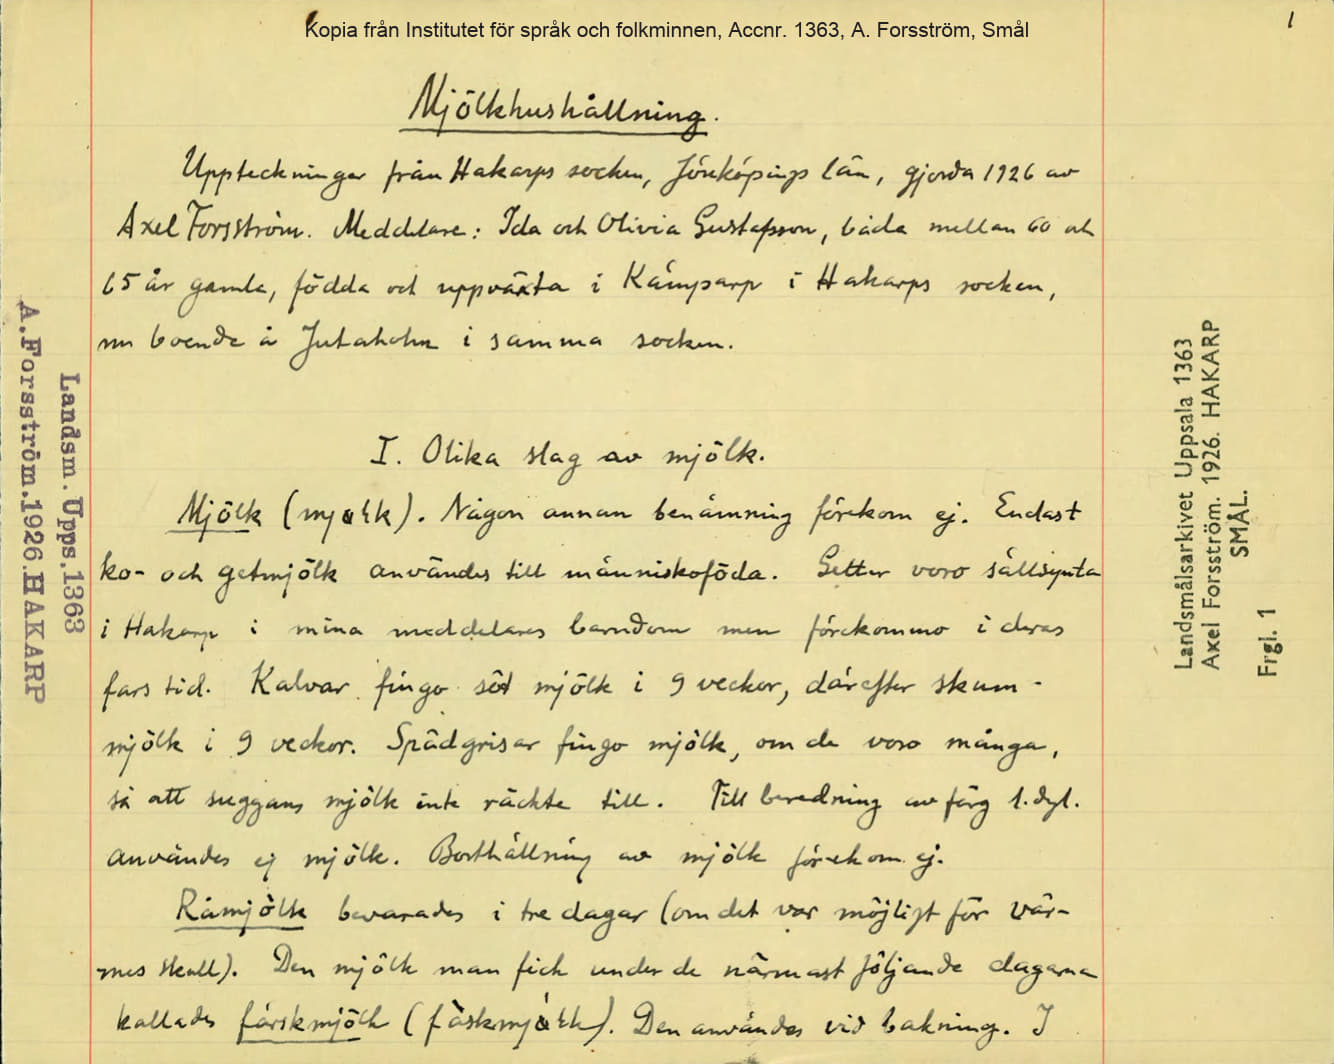 Kopia från Institutet för språk och folkminnen, Accnr. 1363, A. Forsström, Smål
1
Mjölkhushållning.
Uppteckningar från Hakarps socken, Jönköpings län, gjorda 1926 av
Axel Forsström. Meddelare: Ida och Olivia Gustafsson, båda mellan 60 och
65 år gamla, födda och uppväxta i Kämparp i Hakarps socken,
nu boende å Jutaholm i samma socken.
I. Olika slag av mjölk.
Mjölk (mjölk). Någon annan benämning förekom ej. Endast
ko- och getmjölk användes till människoföda. Getter voro sällsynta
i Hakarp i mina meddelares barndom men förekommo i deras
fars tid. Kalvar fingo söt mjölk i 9 veckor, därefter skum-
mjölk i 9 veckor. Spädgrisar fingo mjölk, om de voro många,
så att suggans mjölk inte räckte till. Till beredning av färg l. dyl.
användes ej mjölk. Bosthållning av mjölk förekom ej.
Råmjölk bevarades i tre dagar (om det var möjligt för vär-
mes skull). Den mjölk man fick under de närmast följande dagarna
kallades färskmjölk (fäskmjölk). Den användes vid bakning. I
Landsm. Upps. 1363
A. Forsström. 1926. HAKARP
Landsmålsarkivet Uppsala 1363
Axel Forsström. 1926. HAKARP
SMÅL.
Frgl. 1